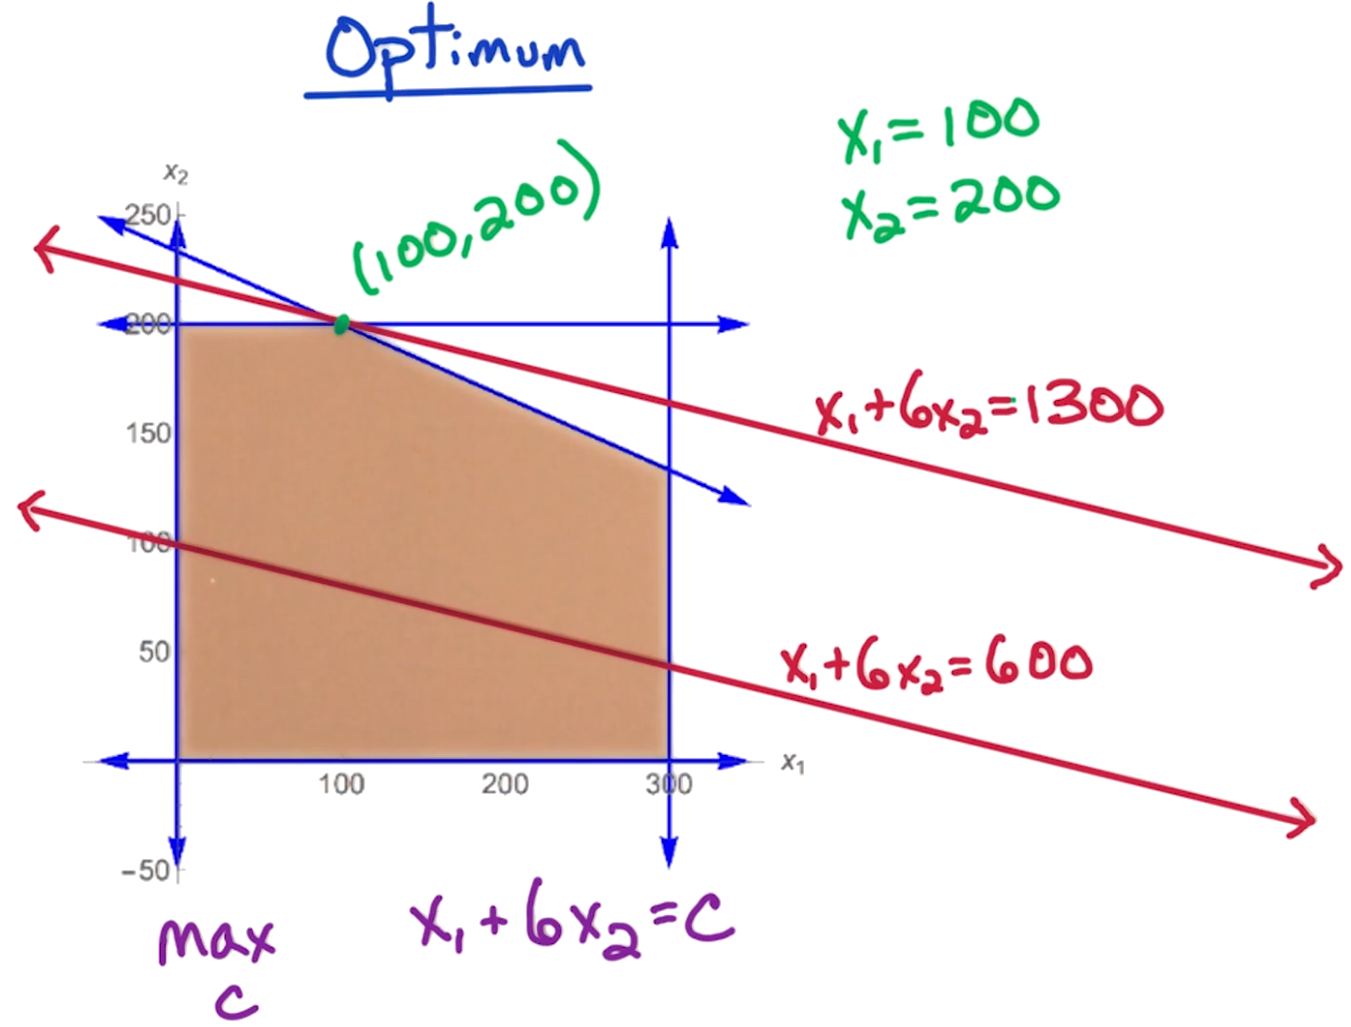 Optimum
x₁ = 100
x₂ = 200
(100, 200)
x₂
250
200
150
100
50
-50
100
200
300
x₁
x₁ + 6x₂ = 1300
x₁ + 6x₂ = 600
max
c
x₁ + 6x₂ = c